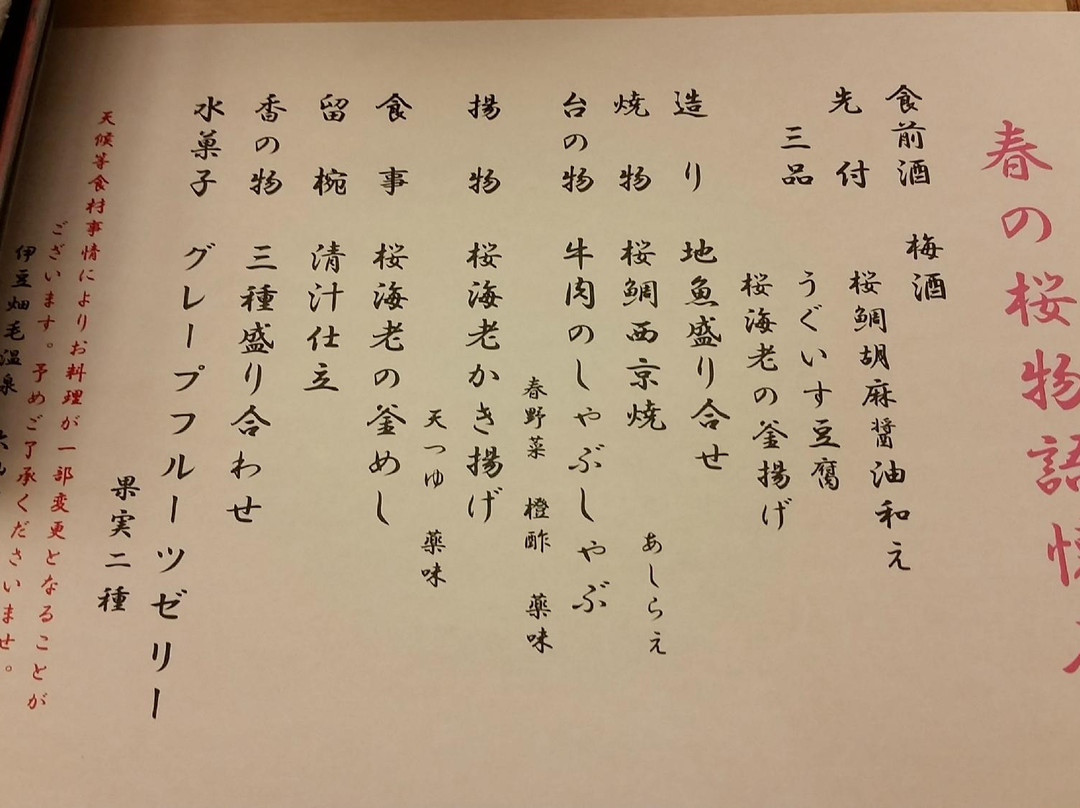 春の桜物語
食前酒　梅酒
先付　桜鯛胡麻醤油和え
三品　うぐいす豆腐
桜海老の釜揚げ
造り　地魚盛り合せ
焼物　桜鯛西京焼
あしらえ
台の物　牛肉のしゃぶしゃぶ
春野菜　橙酢　薬味
揚物　桜海老かき揚げ
天つゆ　薬味
食事　桜海老の釜めし
留椀　清汁仕立
香の物　三種盛り合わせ
水菓子　グレープフルーツゼリー
果実二種
天候等食材事情によりお料理が一部変更となることが
ございます。予めご了承くださいませ。
伊豆畑毛温泉